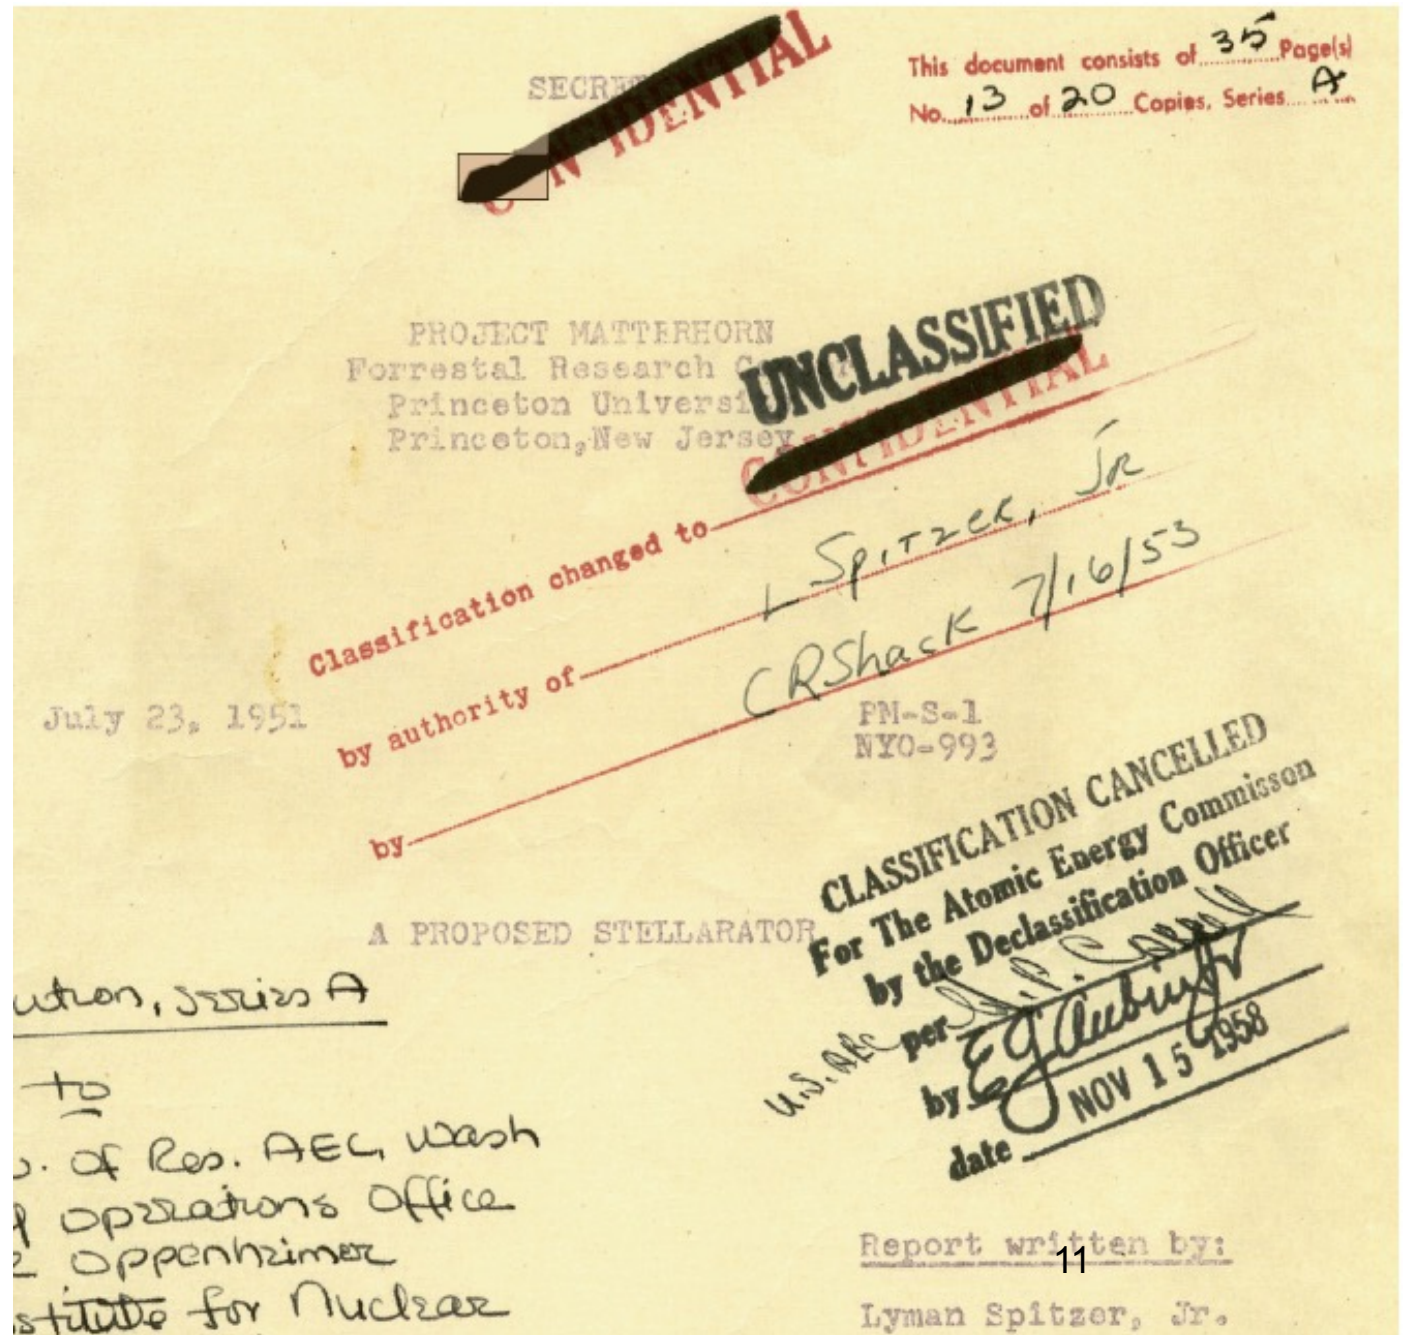 SECRET
CONFIDENTIAL
This document consists of 35 Page(s)
No. 13 of 20 Copies, Series A
PROJECT MATTERHORN
Forrestal Research
Princeton Universi
Princeton, New Jersey
UNCLASSIFIED
CONFIDENTIAL
Classification changed to
by authority of L Spitzer, Jr
by CRShack 7/16/53
July 23, 1951
PM-S-1
NYO-993
A PROPOSED STELLARATOR
CLASSIFICATION CANCELLED
For The Atomic Energy Commisson
by the Declassification Officer
U.S. AEC
per
by
date NOV 15 1958
ution, Series A
to
. of Res. AEC, Wash
Operations Office
Oppenheimer
stitute for Nuclear
Report written by:
11
Lyman Spitzer, Jr.